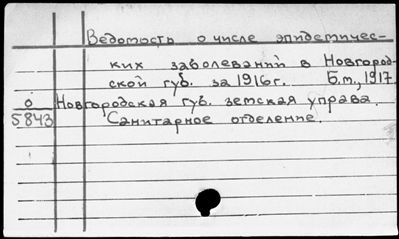 Ведомость о числе эпидемичес-
ких заболеваний в Новгород-
ской губ. за 1916г. Б.м., 1917.
о Новгородская губ. земская управа.
5843 Санитарное отделение.